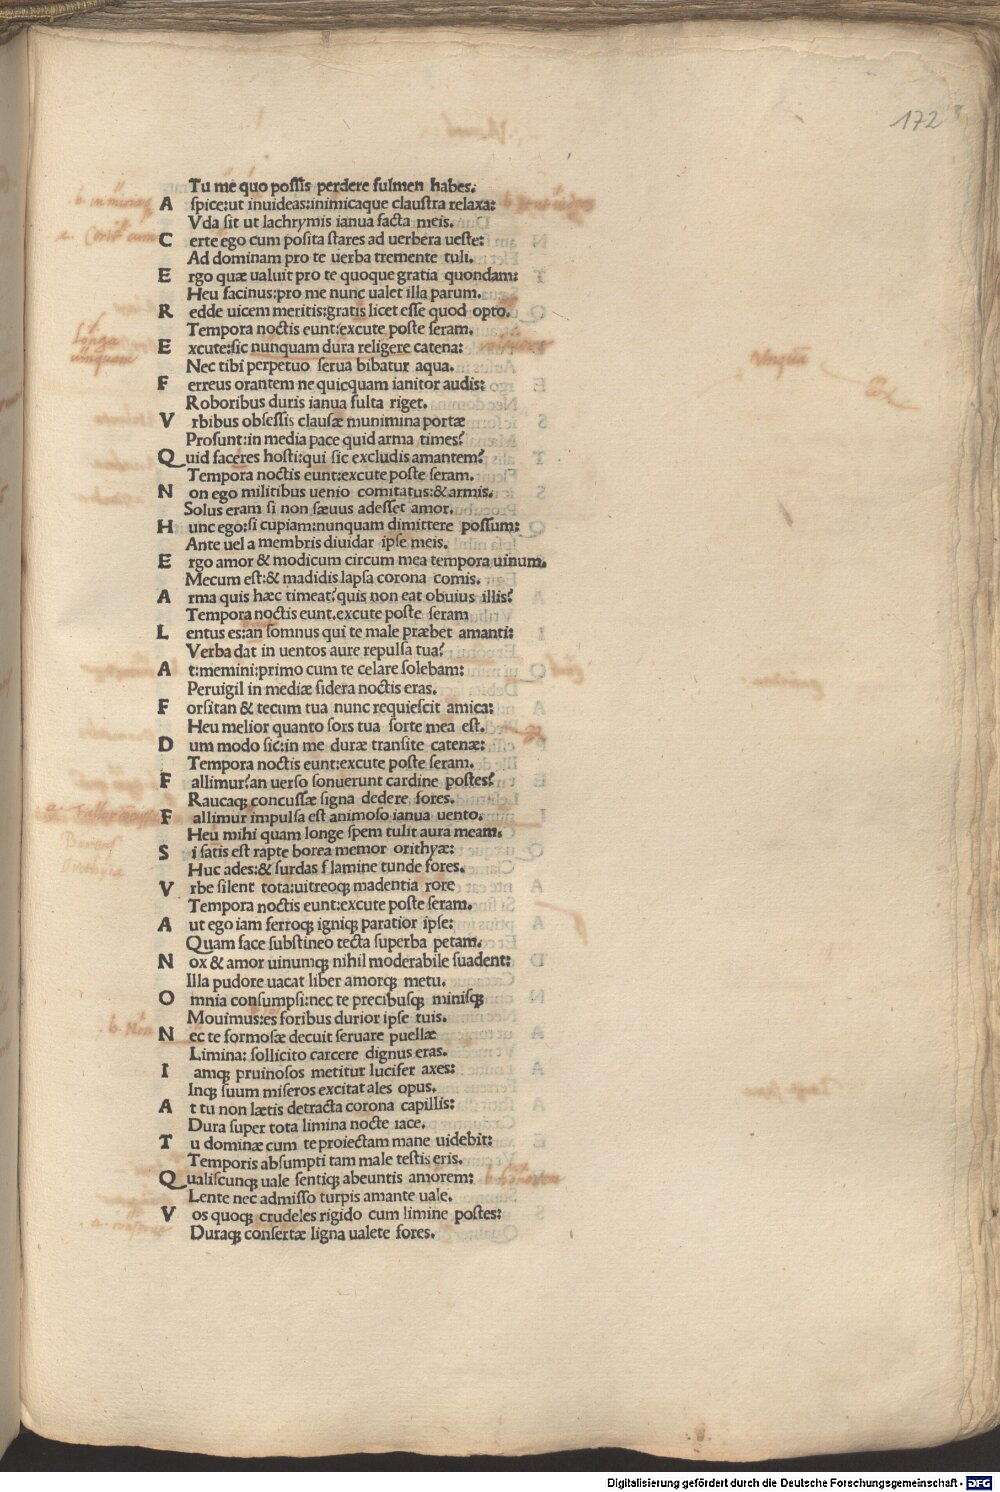 172
Tu me quo possis perdere fulmen habes.
Aspice:ut inuideas:inimicaque claustra relaxa:
Vda sit ut lachrymis ianua facta meis.
Certe ego cum posita stares ad uerbera ueste:
Ad dominam pro te uerba tremente tuli.
Ergo quæ ualuit pro te quoque gratia quondam:
Heu facinus:pro me nunc ualet illa parum.
Redde uicem meritis:gratis licet esse quod opto.
Tempora noctis eunt:excute poste seram.
Excute:sic nunquam dura religere catena:
Nec tibi perpetuo serua bibatur aqua.
Ferreus orantem ne quicquam ianitor audis:
Roboribus duris ianua fulta riget.
Vrbibus obsessis clausæ munimina portæ
Prosunt:in media pace quid arma times?
Quid faceres hosti:qui sic excludis amantem?
Tempora noctis eunt:excute poste seram.
Non ego militibus uenio comitatus:& armis.
Solus eram si non sæuus adesset amor.
Hunc ego:si cupiam:nunquam dimittere possum:
Ante uel a membris diuidar ipse meis.
Ergo amor & modicum circum mea tempora uinum.
Mecum est:& madidis lapsa corona comis.
Arma quis hæc timeat?quis non eat obuius illis?
Tempora noctis eunt.excute poste seram
Lentus es:an somnus qui te male præbet amanti:
Verba dat in uentos aure repulsa tua?
At:memini:primo cum te celare solebam:
Peruigil in mediæ sidera noctis eras.
Forsitan & tecum tua nunc requiescit amica:
Heu melior quanto sors tua sorte mea est.
Dum modo sic:in me duræ transite catenæ:
Tempora noctis eunt:excute poste seram.
Fallimur?an uerso sonuerunt cardine postes?
Raucaq; concussæ signa dedere fores.
Fallimur impulsa est animoso ianua uento.
Heu mihi quam longe spem tulit aura meam.
Si satis est rapte borea memor orithyæ:
Huc ades:& surdas flamine tunde fores.
Vrbe silent tota:uitreoq; madentia rore
Tempora noctis eunt:excute poste seram.
Aut ego iam ferroq; igniq; paratior ipse:
Quam face substineo tecta superba petam.
Nox & amor uinumq; nihil moderabile suadent:
Illa pudore uacat liber amorq; metu.
Omnia consumpsi:nec te precibusq; minisq;
Mouimus:es foribus durior ipse tuis.
Nec te formosæ decuit seruare puellæ
Limina: sollicito carcere dignus eras.
Iamq; pruinosos metitur lucifer axes:
Inq; suum miseros excitat ales opus.
At tu non lætis detracta corona capillis:
Dura super tota limina nocte iace.
Tu dominæ cum te proiectam mane uidebit:
Temporis absumpti tam male testis eris.
Qualiscunq; uale sentiq; abeuntis amorem:
Lente nec admisso turpis amante uale.
Vos quoq; crudeles rigido cum limine postes:
Duraq; consertæ ligna ualete fores.
Digitalisierung gefördert durch die Deutsche Forschungsgemeinschaft - DFG